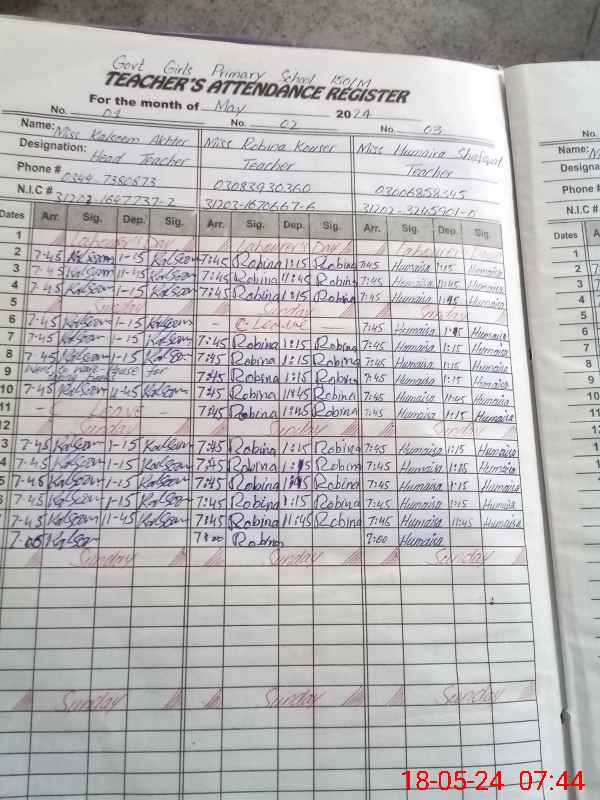 Govt Girls Primary School 150/M
TEACHER'S ATTENDANCE REGISTER
For the month of May 2024
No. 01 No. 02 No. 03
Name: Miss Kalsoom Akhter Miss Robina Kouser Miss Humaira Shafqat
Designation: Head Teacher Teacher Teacher
Phone # 0344-7380573 03083930360 03006858345
N.I.C # 31202 1647737-2 31203-1670667-6 31202-3245901-0
Dates Arr. Sig. Dep. Sig. Arr. Sig. Dep. Sig. Arr. Sig. Dep. Sig.
1 Labour's Day Labourer's Day Labourer Day
2 7-45 Kalsoom 1-15 Kalsoom 7:45 Robina 1:15 Robina 7:45 Humaira 1:15 Humaira
3 7-45 Kalsoom 11-45 Kalsoom 7:45 Robina 11:45 Robina 7:45 Humaira 11:45 Humaira
4 7-45 Kalsoom 1-15 Kalsoom 7:45 Robina 1:15 Robina 7:45 Humaira Humaira
5 Sunday Sunday Sunday
6 7-45 Kalsoom 1-15 Kalsoom - C. Leave 7:45 Humaira Humaira
7 7-45 Kalsoom 1-15 Kalsoom 7:45 Robina 1:15 Robina 7:45 Humaira 1:15 Humaira
8 7-45 Kalsoom 1-15 Kalsoom 7:45 Robina 1:15 Robina 7:45 Humaira 1:15 Humaira
9 Went to for 7:45 Robina 1:15 Robina 7:45 Humaira 1:15 Humaira
10 7-45 Kalsoom 11-45 Kalsoom 7:45 Robina 11:45 Robina 7:45 Humaira 11:45 Humaira
11 - C Leave - 7:45 Robina Robina 7:45 Humaira 1:15 Humaira
12 Sunday Sunday Sunday
3 7-45 Kalsoom 1-15 Kalsoom 7:45 Robina 1:15 Robina 7:45 Humaira 1:15 Humaira
4 7-45 Kalsoom 1-15 Kalsoom 7:45 Robina Robina 7:45 Humaira 1:15 Humaira
5 7-45 Kalsoom 1-15 Kalsoom 7:45 Robina Robina 7:45 Humaira 1:15 Humaira
6 7-45 Kalsoom 1-15 Kalsoom 7:45 Robina 1:15 Robina 7:45 Humaira 1:15 Humaira
7-45 Kalsoom 11-45 Kalsoom 7:45 Robina 11:45 Robina 7:45 Humaira 11:45 Humaira
7-00 Kalsoom 7:00 Robina 7:00 Humaira
Sunday Sunday Sunday
Sunday Sunday Sunday
No.
Name:
Designa
Phone #
N.I.C #
Dates A
1
2
3
4
5
6
7
8
9
10
11
12
18-05-24 07:44